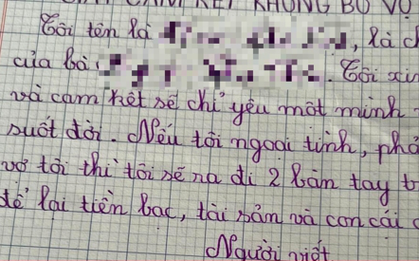 KẾT KHÔNG BỎ VỢ
Tôi tên là , là
của bà . Tôi xin
và cam kết sẽ chỉ yêu một mình
suốt đời. Nếu tôi ngoại tình, phá
vợ tôi thì tôi sẽ ra đi 2 bàn tay
để lại tiền bạc, tài sản và con cái
Người viết